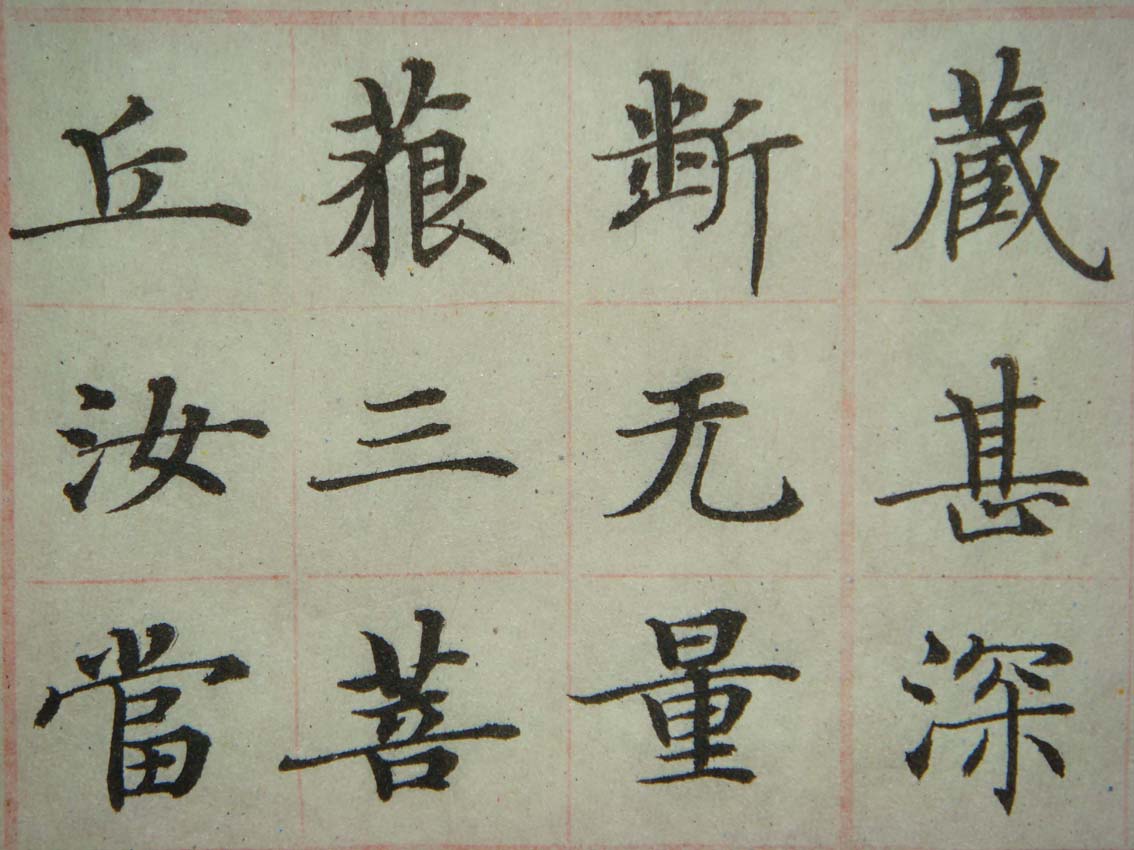 藏甚深
斷无量
藐三菩
丘汝當